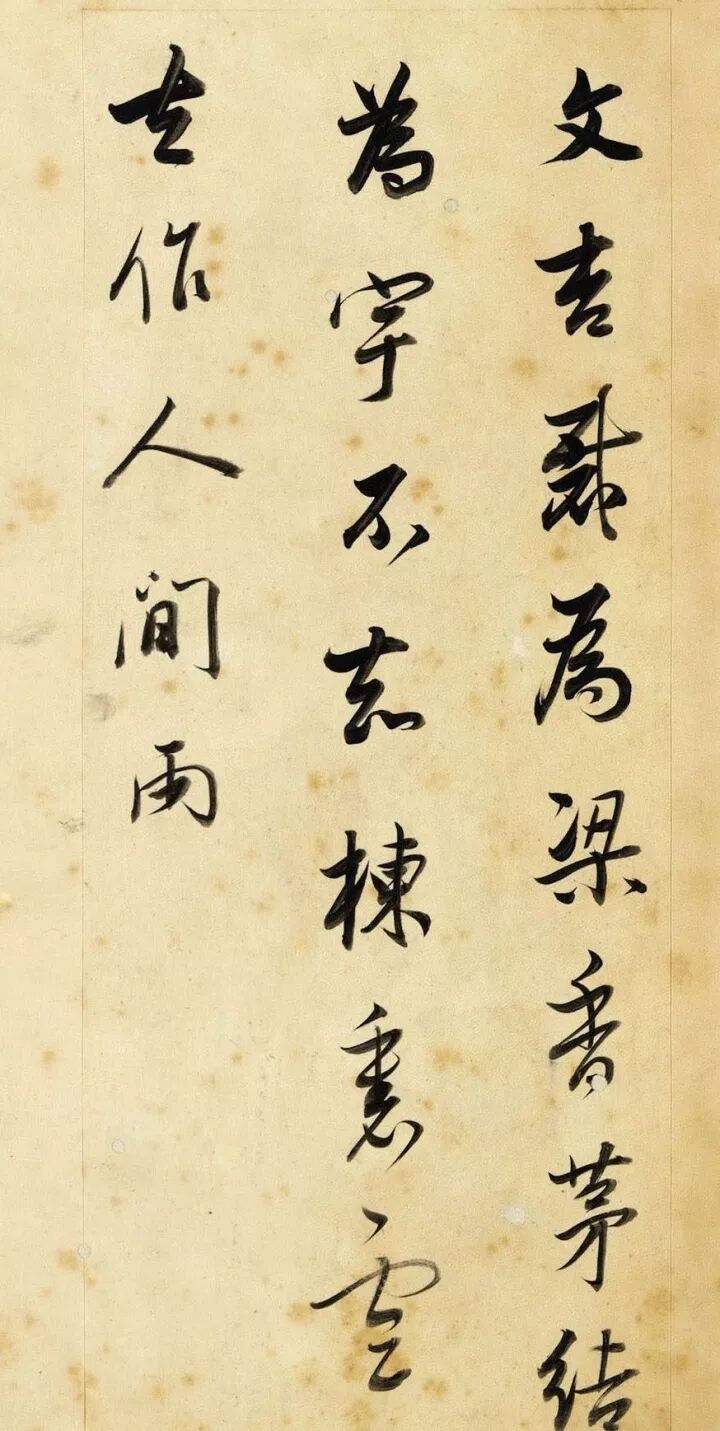 文杏裁為梁香茅結
為宇不知棟裏雲
去作人間雨